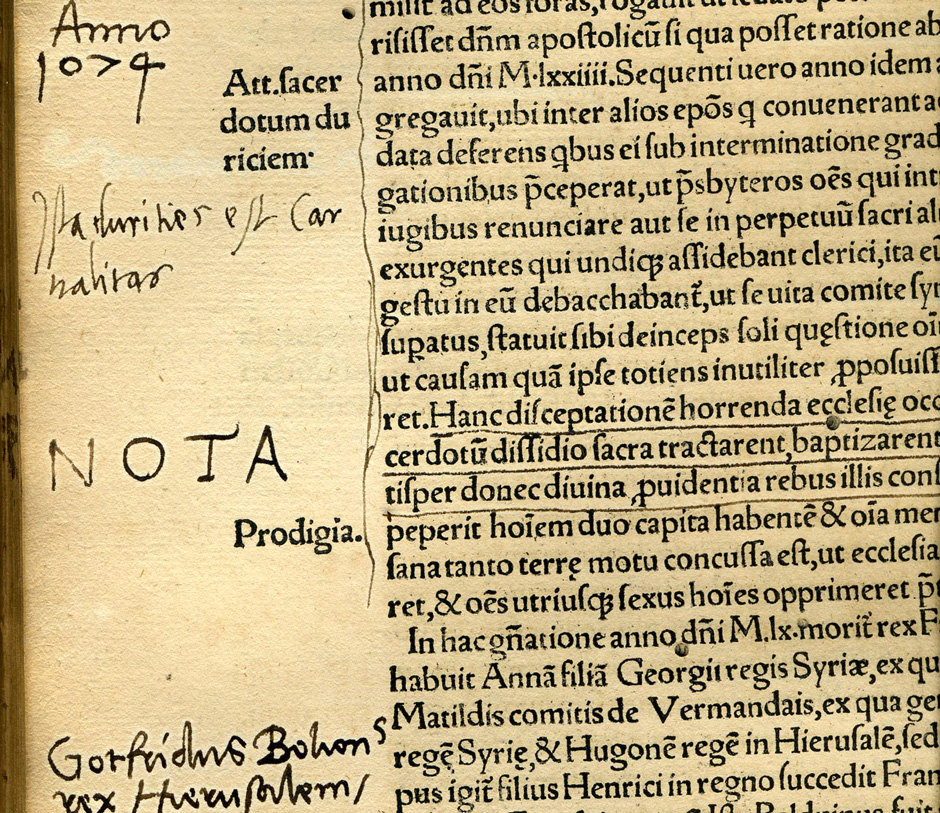 Anno
1074
Att.sacer
dotum du
riciem
Ista durities est Car
nalitas
NOTA
Prodigia.
Gotfridus Bolion
rex Hierusalem
risisset dn̄m apostolicū si qua posset ratione ab
anno dn̄i M.lxxiiii.Sequenti uero anno idem
gregauit,ubi inter alios ep̄os q conuenerant
data deferens qbus ei sub interminatione grad
gationibus p̄ceperat,ut p̄sbyteros oēs qui int
iugibus renunciare aut se in perpetuū sacri al
exurgentes qui undiqꝫ assidebant clerici,ita eū
gestu in eū debacchabant̄,ut se uita comite sy
supatus,statuit sibi deinceps soli quęstione oī
ut causam quā ipse totiens inutiliter ꝓposuiss
ret.Hanc disceptationē horrenda ecclesię occ
cerdotū dissidio sacra tractarent,baptizarent
tisper donec diuina ꝓuidentia rebus illis cons
peperit hoīem duo capita habentē & oīa mem
sana tanto terrę motu concussa est,ut ecclesia
ret,& oēs utriusqꝫ sexus hoīes opprimeret
In hac gn̄atione anno dn̄i M.lx.morit̄ rex F
habuit Annā filiā Georgii regis Syriæ,ex qu
Matildis comitis de Vermandais,ex qua ge
regē Syrię,& Hugonē regē in Hierusalē,sed
pus igit̄ filius Henrici in regno succedit Fran